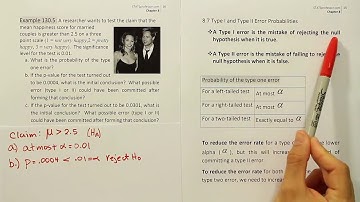 Example 130.5 A researcher wants to test the claim that the
mean happiness score for married
couples is greater than 2.5 on a three
point scale (1 = not very happy, 2 = pretty
happy, 3 = very happy). The significance
level for the test is 0.01.
a. What is the probability of the type
one error?
b. If the p-value for the test turned out
to be 0.0004, what is the conclusion. What possible error
(type I or II) could have been committed after
forming that conclusion?
c. If the p-value for the test turned out to be 0.0301, what
is the conclusion. What possible error (type I or II)
could have been committed after forming that conclusion?
Claim: μ > 2.5 (Ha)
a) at most α = 0.01
b) P = .0004 < .01 = α reject Ho
Chapter 8
8.7 Type I and Type II Error Probabilities
A Type I error is the mistake of rejecting the null
hypothesis when it is true.
A Type II error is the mistake of failing to reject
hypothesis when it is false.
Probability of the type one error
For a left-tailed test At most α
For a right-tailed test At most α
For a two-tailed test Exactly equal to α
To reduce the error rate for a type lower
alpha (α), but this will increase of
committing a type II error.
To reduce the error rate for both
type two error, we need to increase